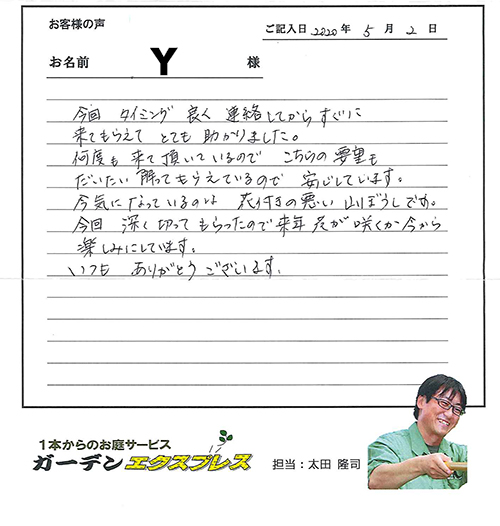 お客様の声
ご記入日 2020 年 5 月 2 日
お名前 Y 様
今回 タイミング 良く 連絡してから すぐに
来てもらえて とても 助かりました。
何度も 来て 頂いているので こちらの 要望も
だいたい 解ってもらえているので 安心しています。
今気になっているのは 花付きの悪い 山ぼうしです。
今回 深く 切って もらったので来年 花が 咲くか 今から
楽しみにしています。
いつも ありがとう ございます。
1本からのお庭サービス
ガーデンエクスプレス
担当：太田 隆司